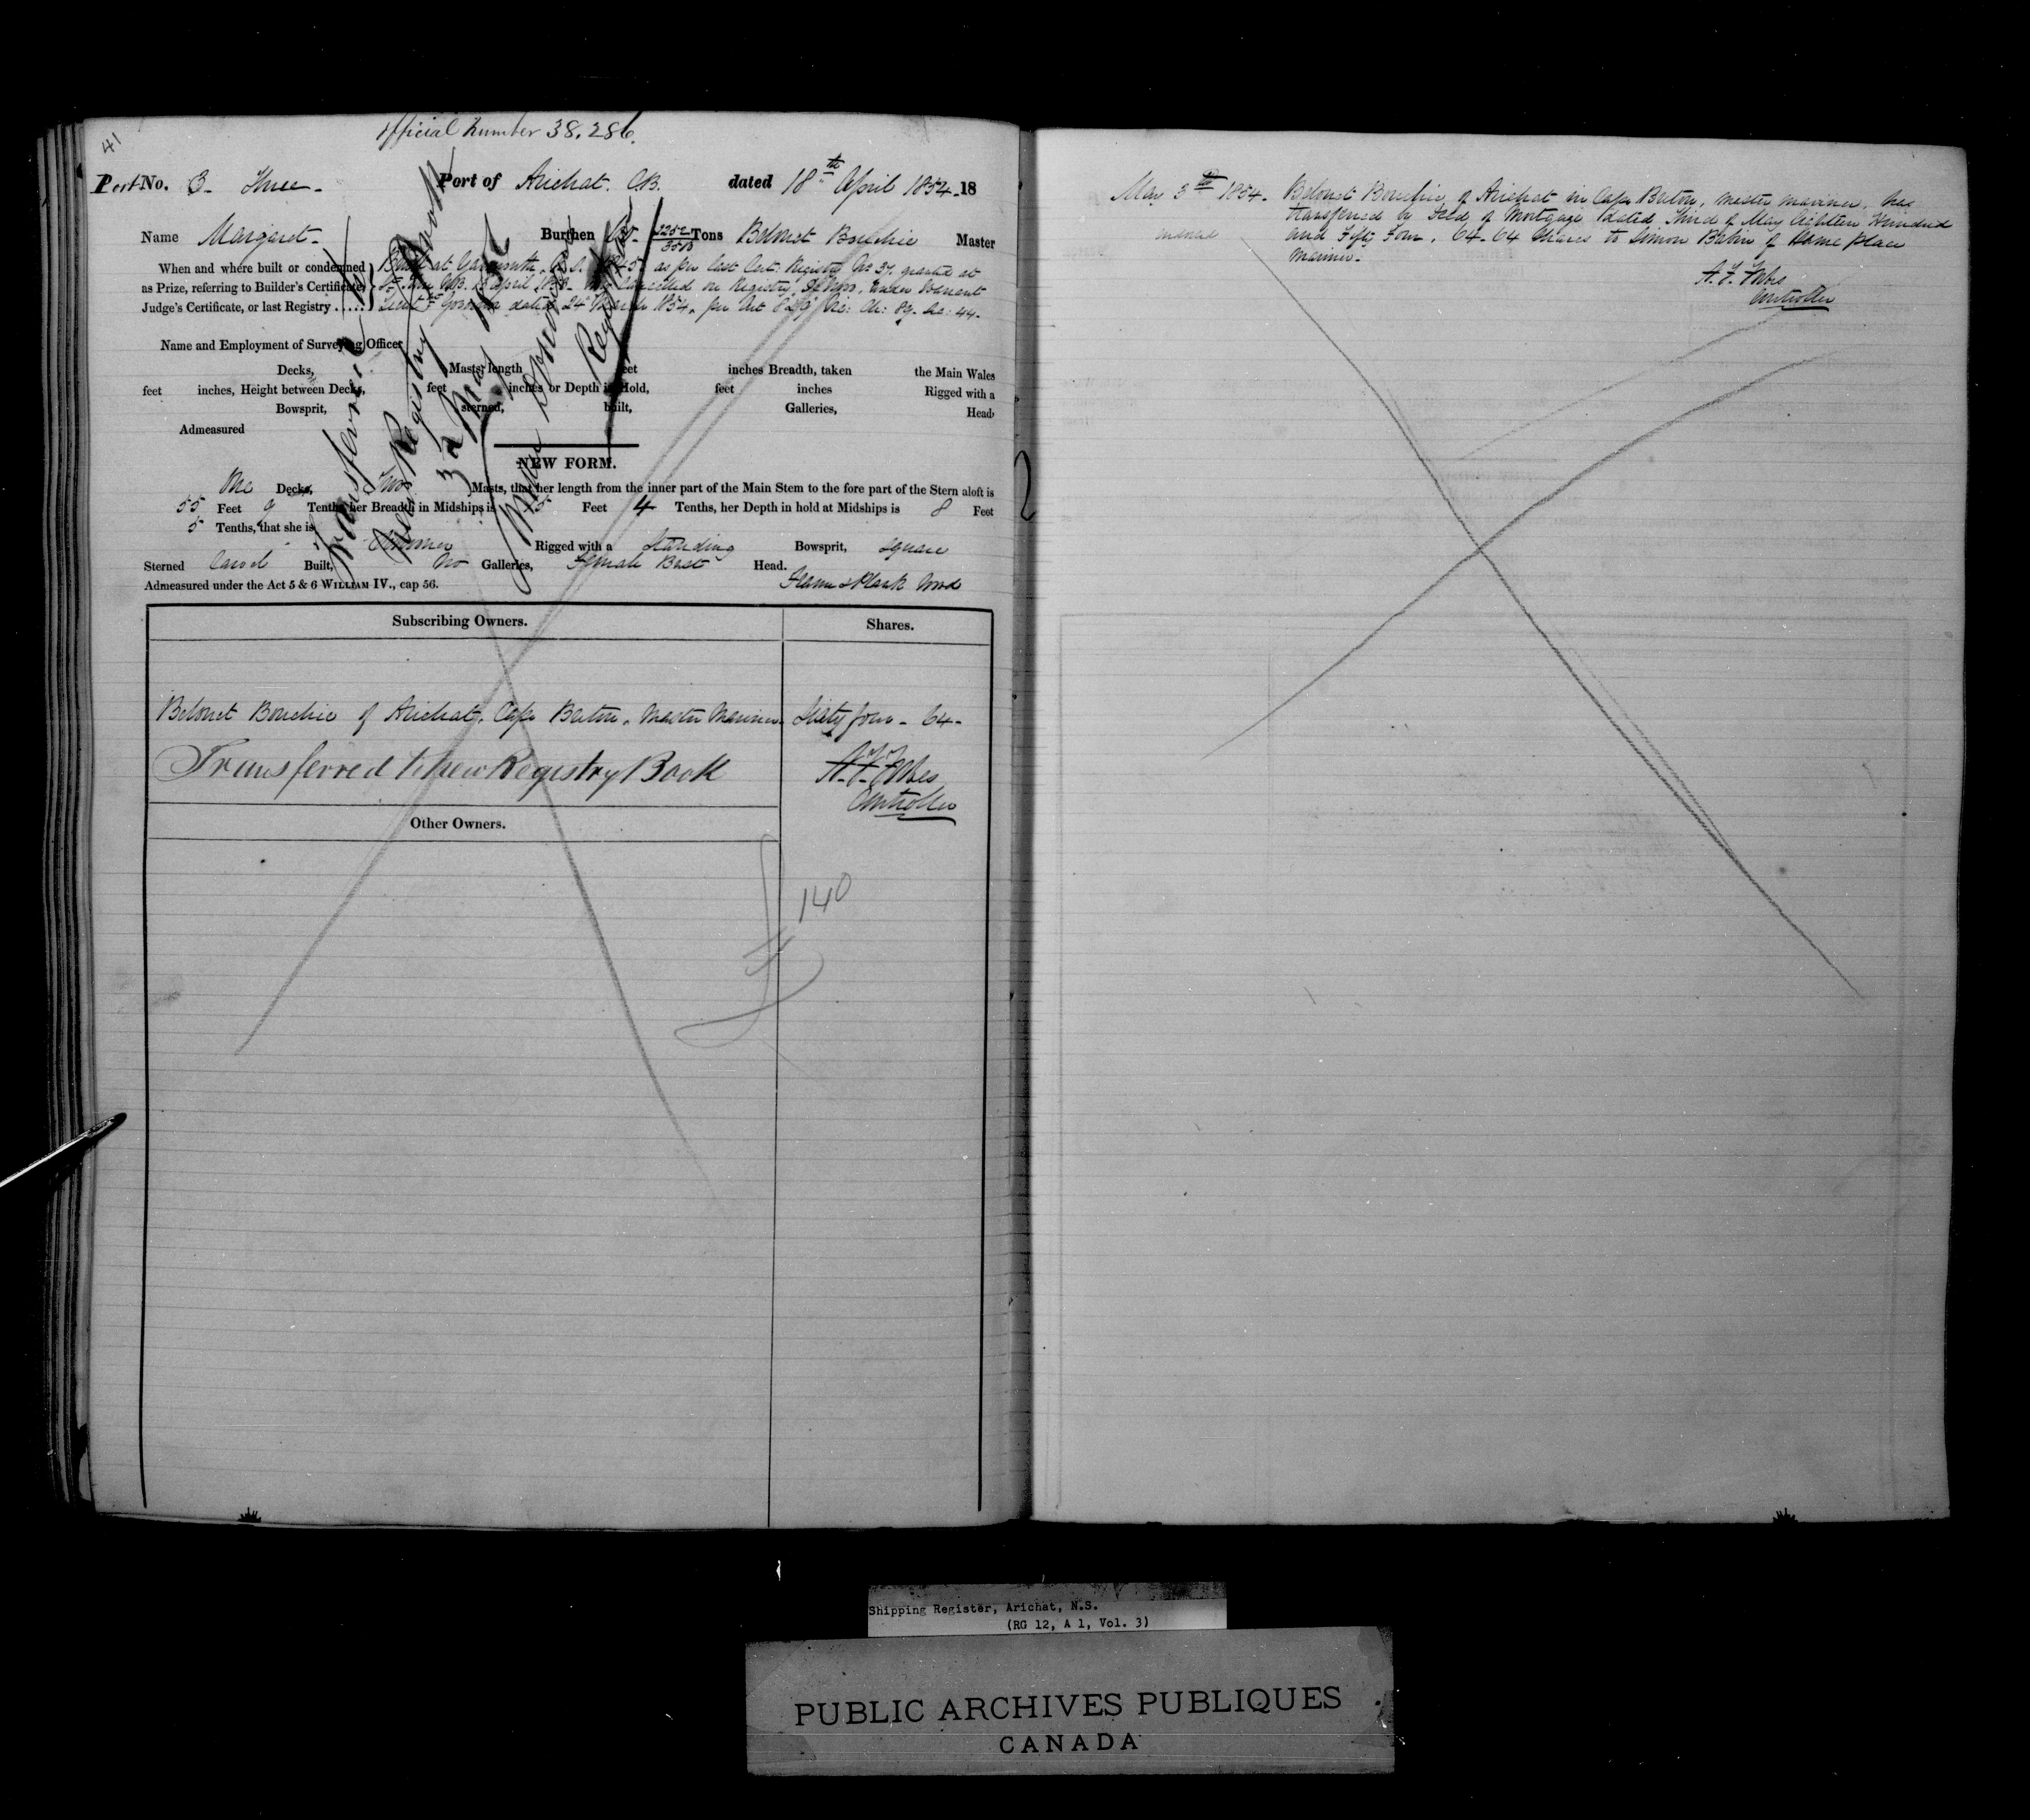 41
Official Number 38.286.
Port No. 3- Three- Port of Arichat. C.B. dated 18th April 1854. 18
Name Margaret- Burthen 2252/3500 Tons Belonet Bouchie Master
When and where built or condemned as Prize, referring to Builder's Certificate, Judge's Certificate, or last Registry .....
Built at Yarmouth, as per last Cert. Registry No 37. granted at
April Cancelled on Registry, under Warrant
Lieut Governor dated 24 March 1854. per Act 8 & 9 Vic: Ch: 89. Sec: 44.
Name and Employment of Surveying Officer
Decks, Masts, length feet inches Breadth, taken the Main Wales
feet inches, Height between Decks, feet inches or Depth in Hold, feet inches Rigged with a
Bowsprit, sterned, built, Galleries, Head
Admeasured
Transferred to
New Registry Book
3d
Registrar
NEW FORM.
One Decks, Two Masts, that her length from the inner part of the Main Stem to the fore part of the Stern aloft is
55 Feet 9 Tenths, her Breadth in Midships is 15 Feet 4 Tenths, her Depth in hold at Midships is 8 Feet
5 Tenths, that she is Schooner Rigged with a Standing Bowsprit, square
Sterned Carvel Built, No Galleries, Female Bust Head.
Admeasured under the Act 5 & 6 WILLIAM IV., cap 56. Frame & Plank Wood
Subscribing Owners. Shares.
Belonet Bouchie of Arichat, Cape Breton, Master Mariner. Sixty four - 64-
Transferred to New Registry Book
A. F. Forbes
Controller
Other Owners.
140
May 3rd 1854. Belonet Bouchie of Arichat in Cape Breton, master mariner, has
transferred by Deed of Mortgage dated Third of May Eighteen Hundred
and Fifty Four, 64-64 Shares to Simon Babin of Same place
Mariner.
A. F. Forbes
Controller
2
Shipping Register, Arichat, N.S.
(RG 12, A 1, Vol. 3)
PUBLIC ARCHIVES PUBLIQUES
CANADA